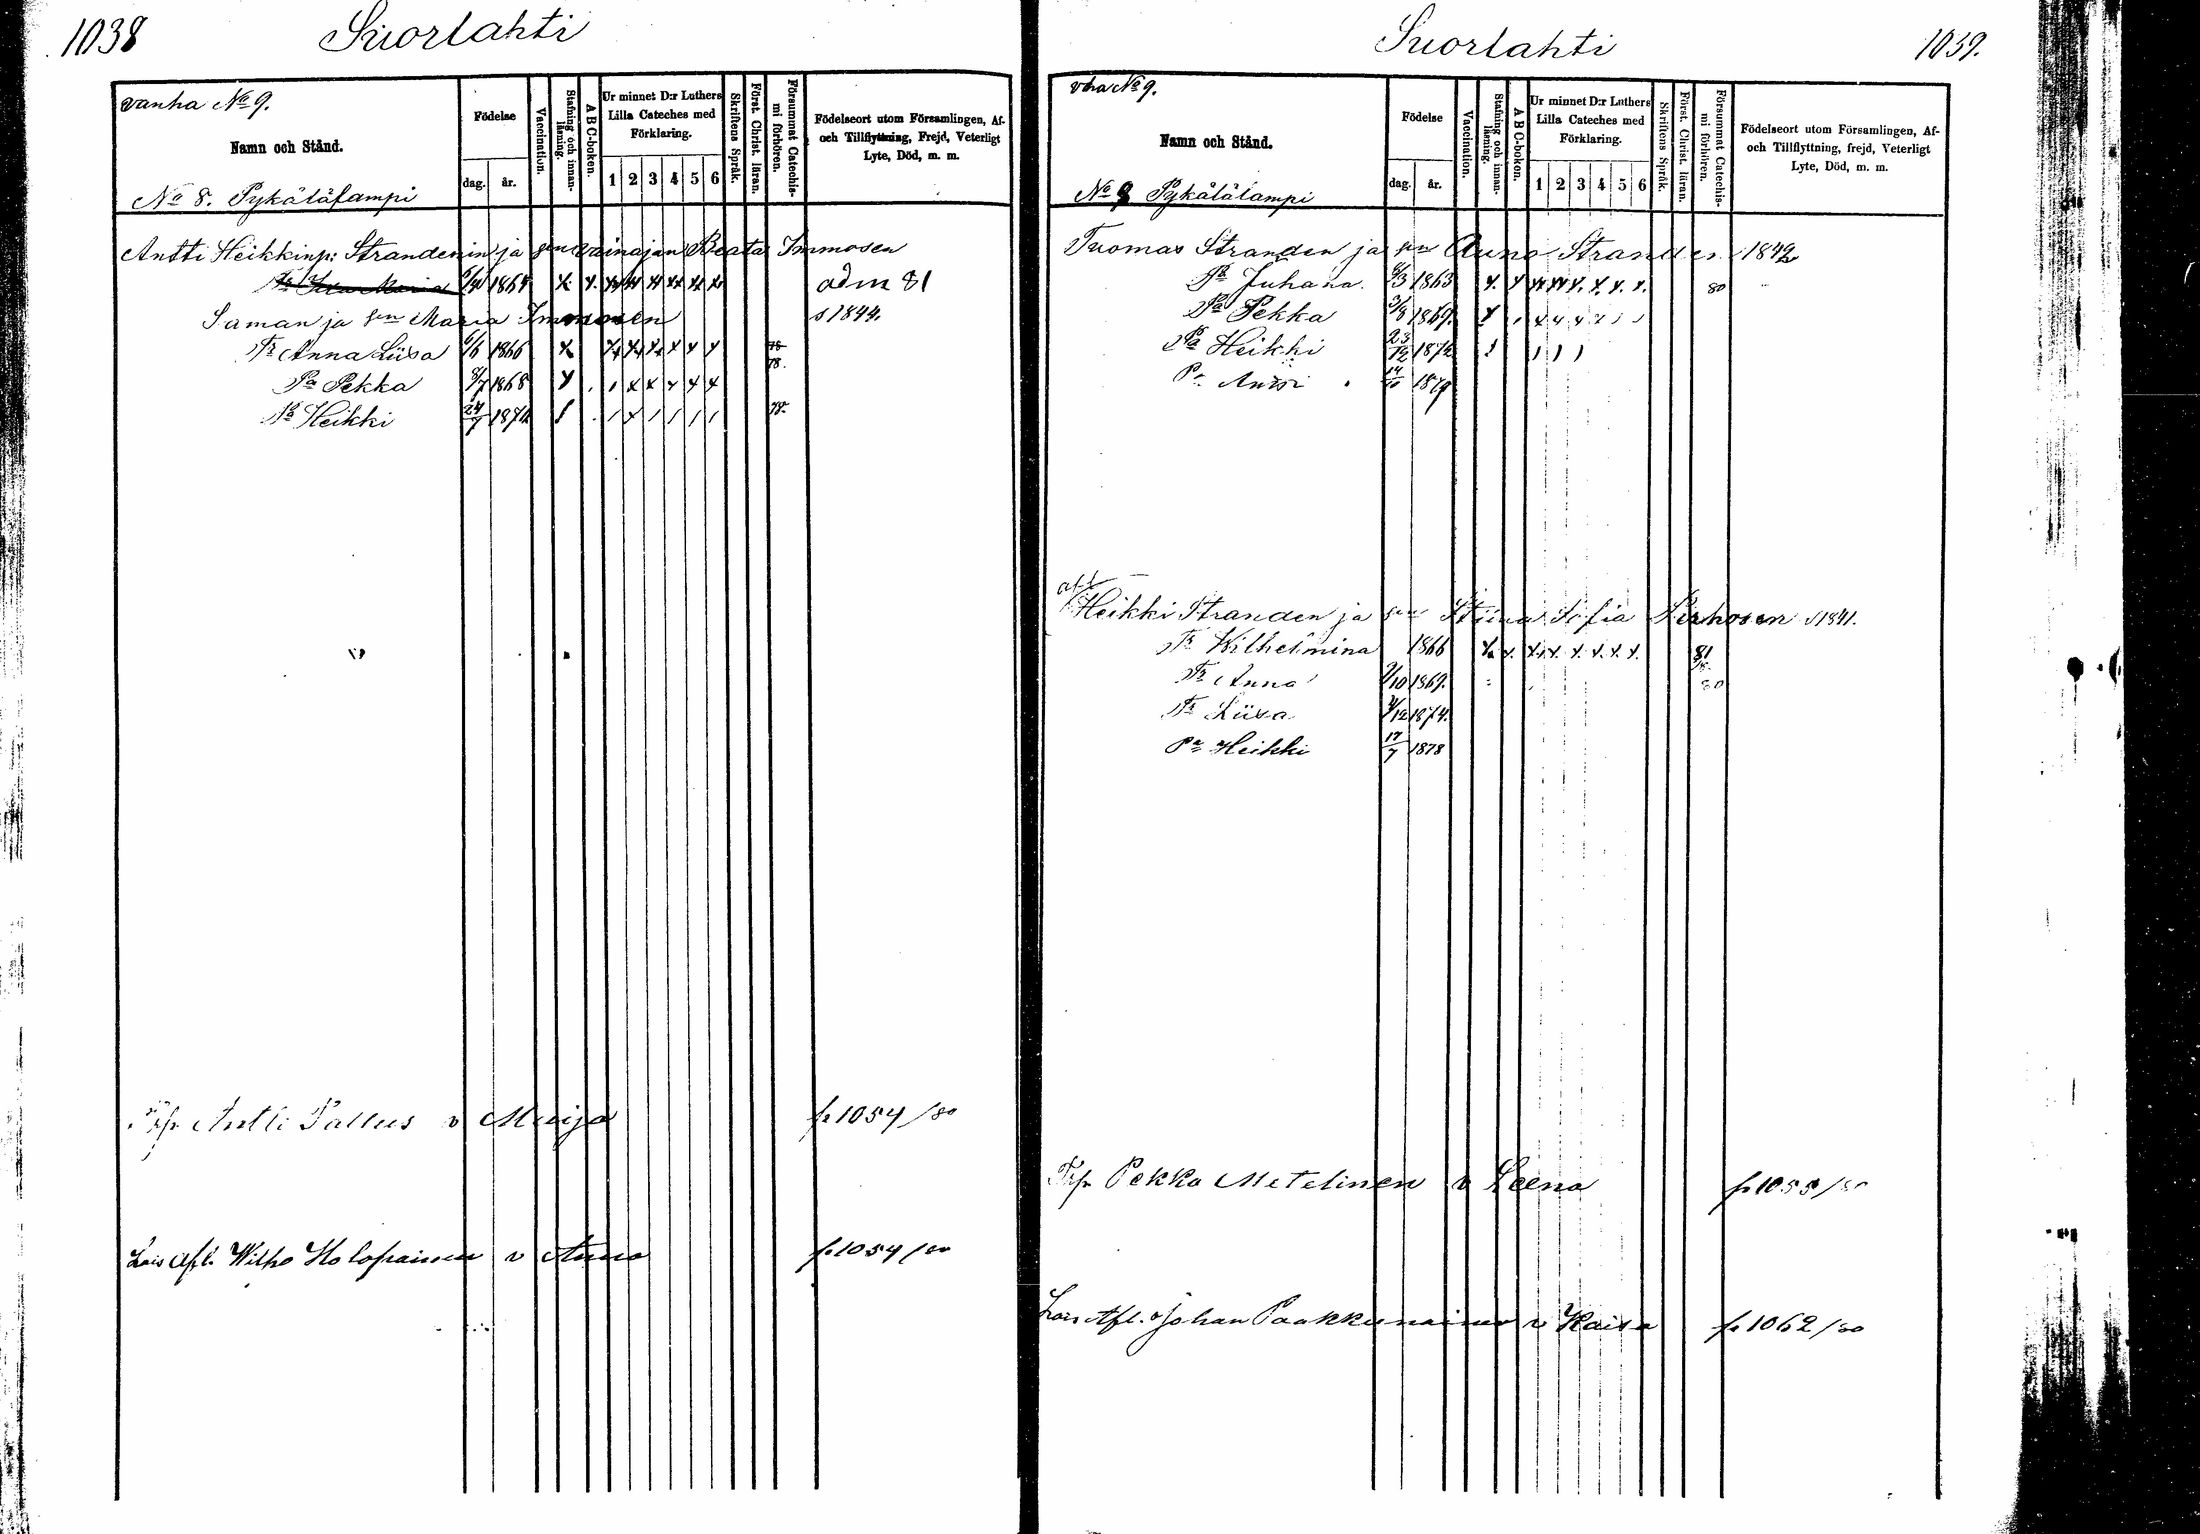 1038 Suorlahti
vanha No 9.
Namn och Stånd.
Födelse
dag. år.
Vaccination.
Stafning och innanläsning.
A B C-boken.
Ur minnet D:r Luthers Lilla Cateches med Förklaring.
1 2 3 4 5 6
Skriftens Språk.
Först. Christ. läran.
Försummat Catechismi förhören.
Födelseort utom Församlingen, Af- och Tillflyttning, Frejd, Veterligt Lyte, Död, m. m.
No 8. Pykälälampi
Antti Heikkinp: Strandenin ja sen vainajan Beata Immosen
1864 adm 81
Saman ja sen Maria Immosen s 1844.
Tr Anna Liisa 6/6 1866 78 78.
Pa Pekka 8/7 1868
Pa Heikki 24/7 1874 78
Antti Pallus v Maija fr 1054/80
Lois Afl. Wilho Holopainen v Anna fr 1054/80
Suorlahti 1039.
vha No 9.
Namn och Stånd.
Födelse
dag. år.
Vaccination.
Stafning och innanläsning.
A B C-boken.
Ur minnet D:r Luthers Lilla Cateches med Förklaring.
1 2 3 4 5 6
Skriftens Språk.
Först. Christ. läran.
Försummat Catechismi förhören.
Födelseort utom Församlingen, Af- och Tillflyttning, frejd, Veterligt Lyte, Död, m. m.
No 9 Pykälälampi
Tuomas Stranden ja sen Anna Stranden 1842
Pa Juhana 6/3 1863 80
Pa Pekka 3/8 1869.
Pa Heikki 23/12 1872
Pa Antti 14/10 1879
Heikki Stranden ja sen Stiina Sofia Pirhosen s 1841.
Tr Wilhelmina 1866 81
Tr Anna /10 1869. 80
Tr Liisa 4/12 1874.
Pa Heikki 17/7 1878
Pekka Metelinen v Leena fr 1055/80
Lois Afl. Johan Paakkunainen v Kaisa fr 1062/80